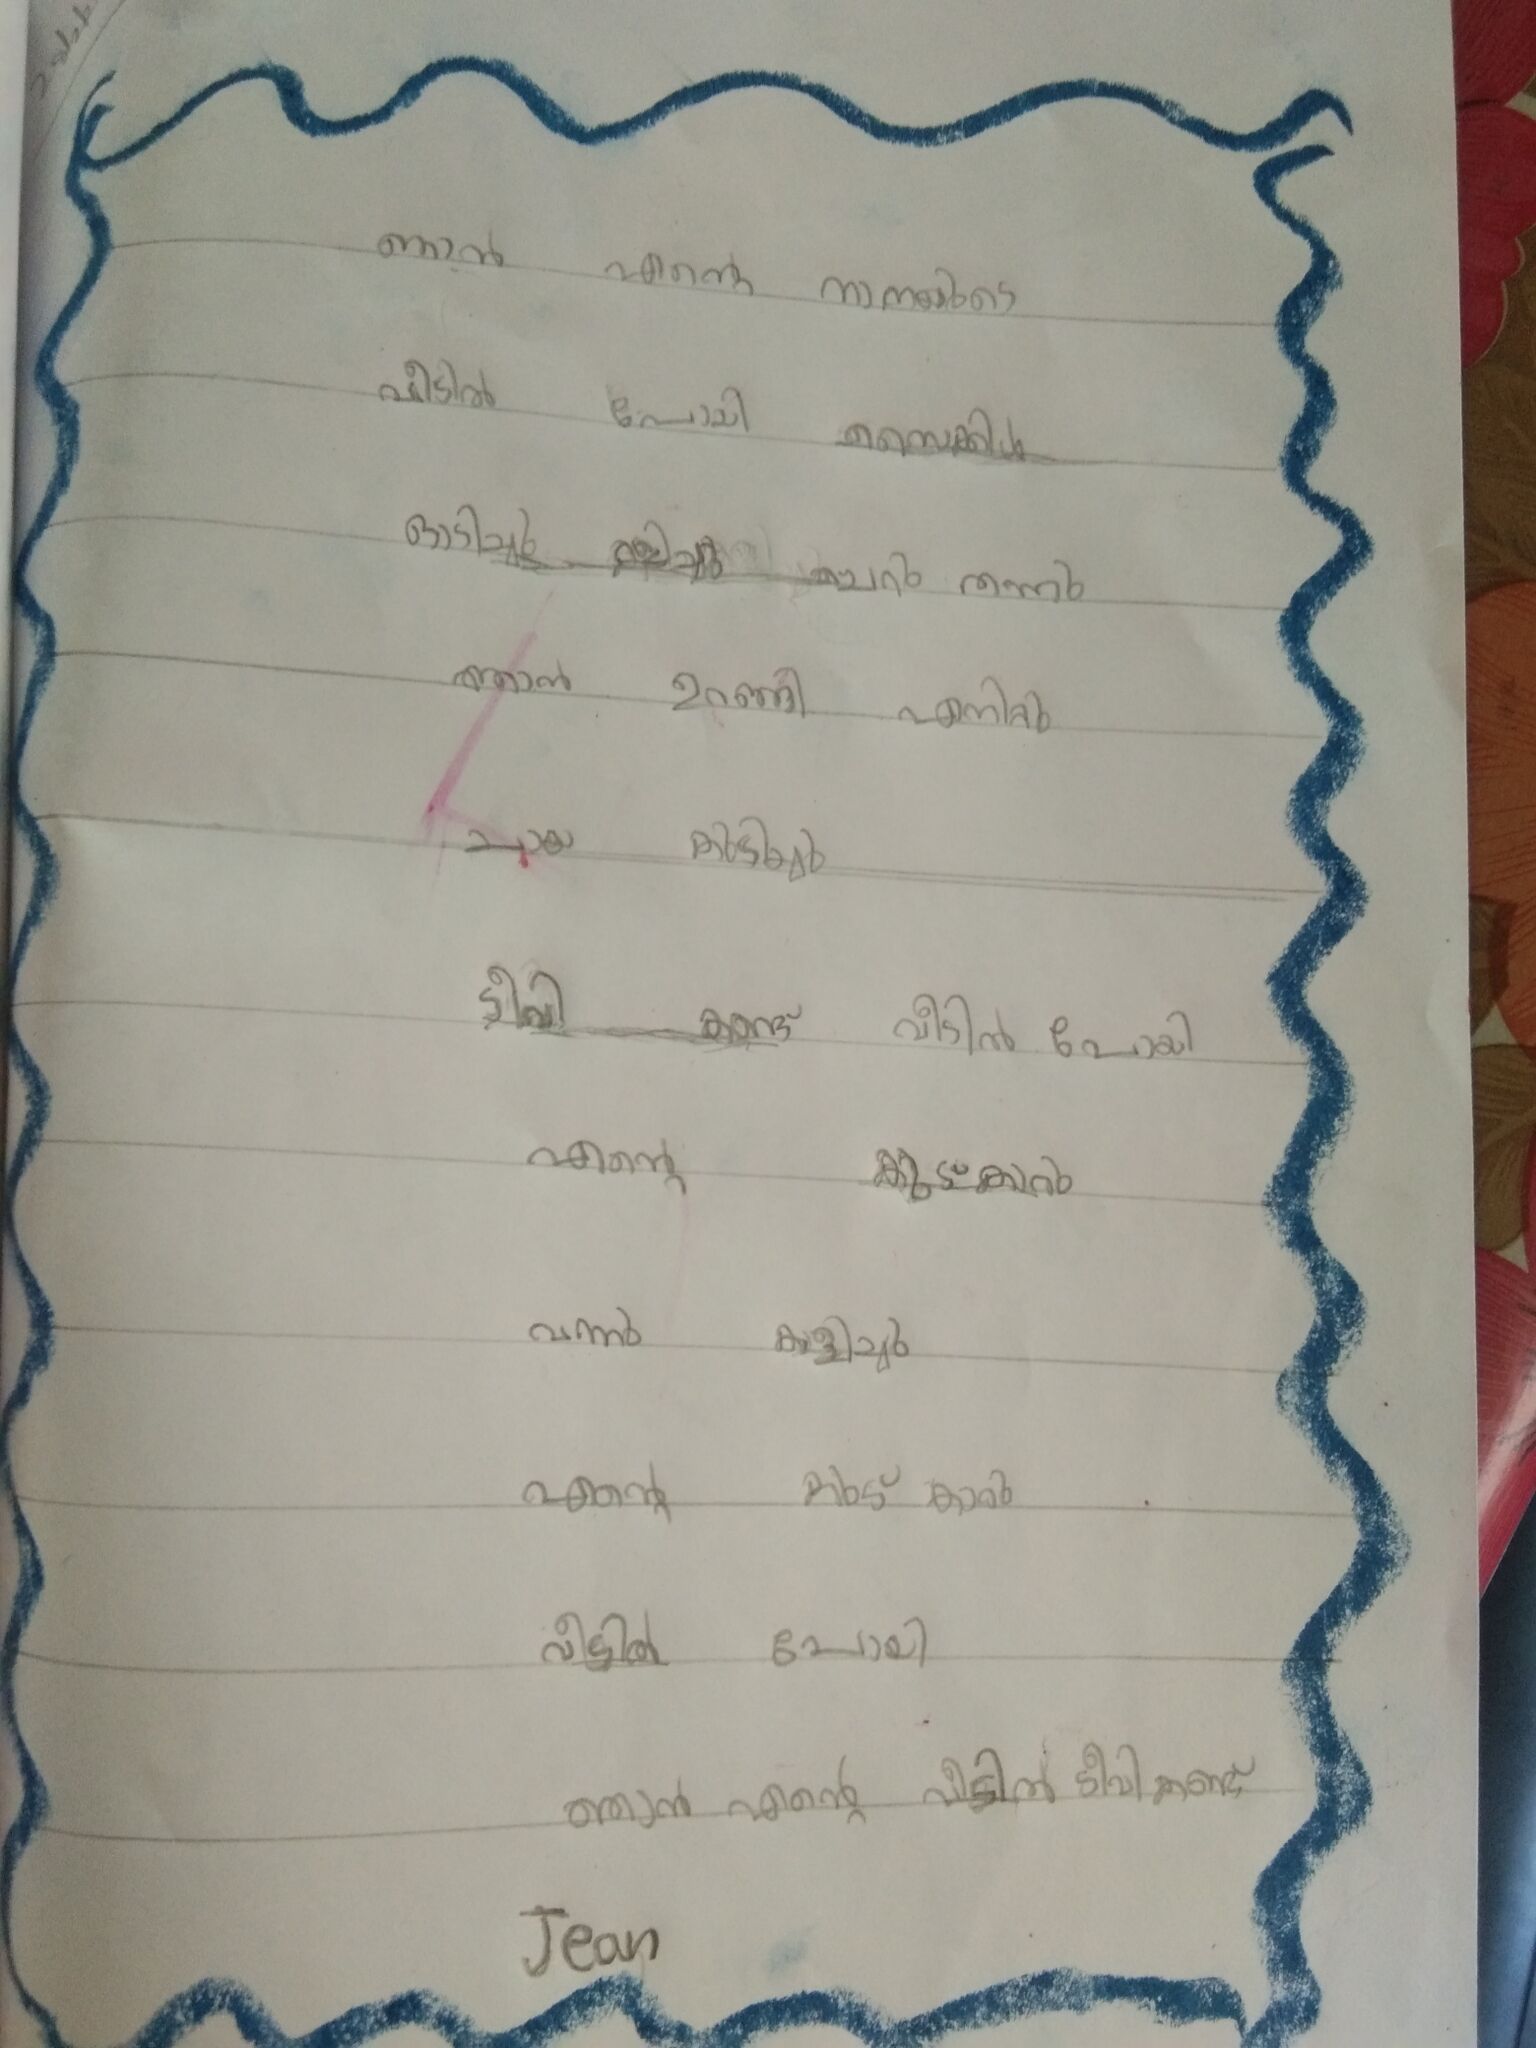 ഞാൻ എന്റെ നാനയുടെ
വീടിൽ പോയി സൈക്കിൾ
ഓടിച്ചു കളിച്ചു ചോറു തന്നു
ഞാൻ ഉറങ്ങി എനിറ്റു
ചായ കുടിച്ചു
ടീവി കണ്ട് വീടിൽ പോയി
എന്റെ കുട്കാരു
വന്നു കളിച്ചു
എന്റെ കുട് കാരു
വീട്ടിൽ പോയി
ഞാൻ എന്റെ വീട്ടിൽ ടീവി കണ്ട്
Jean